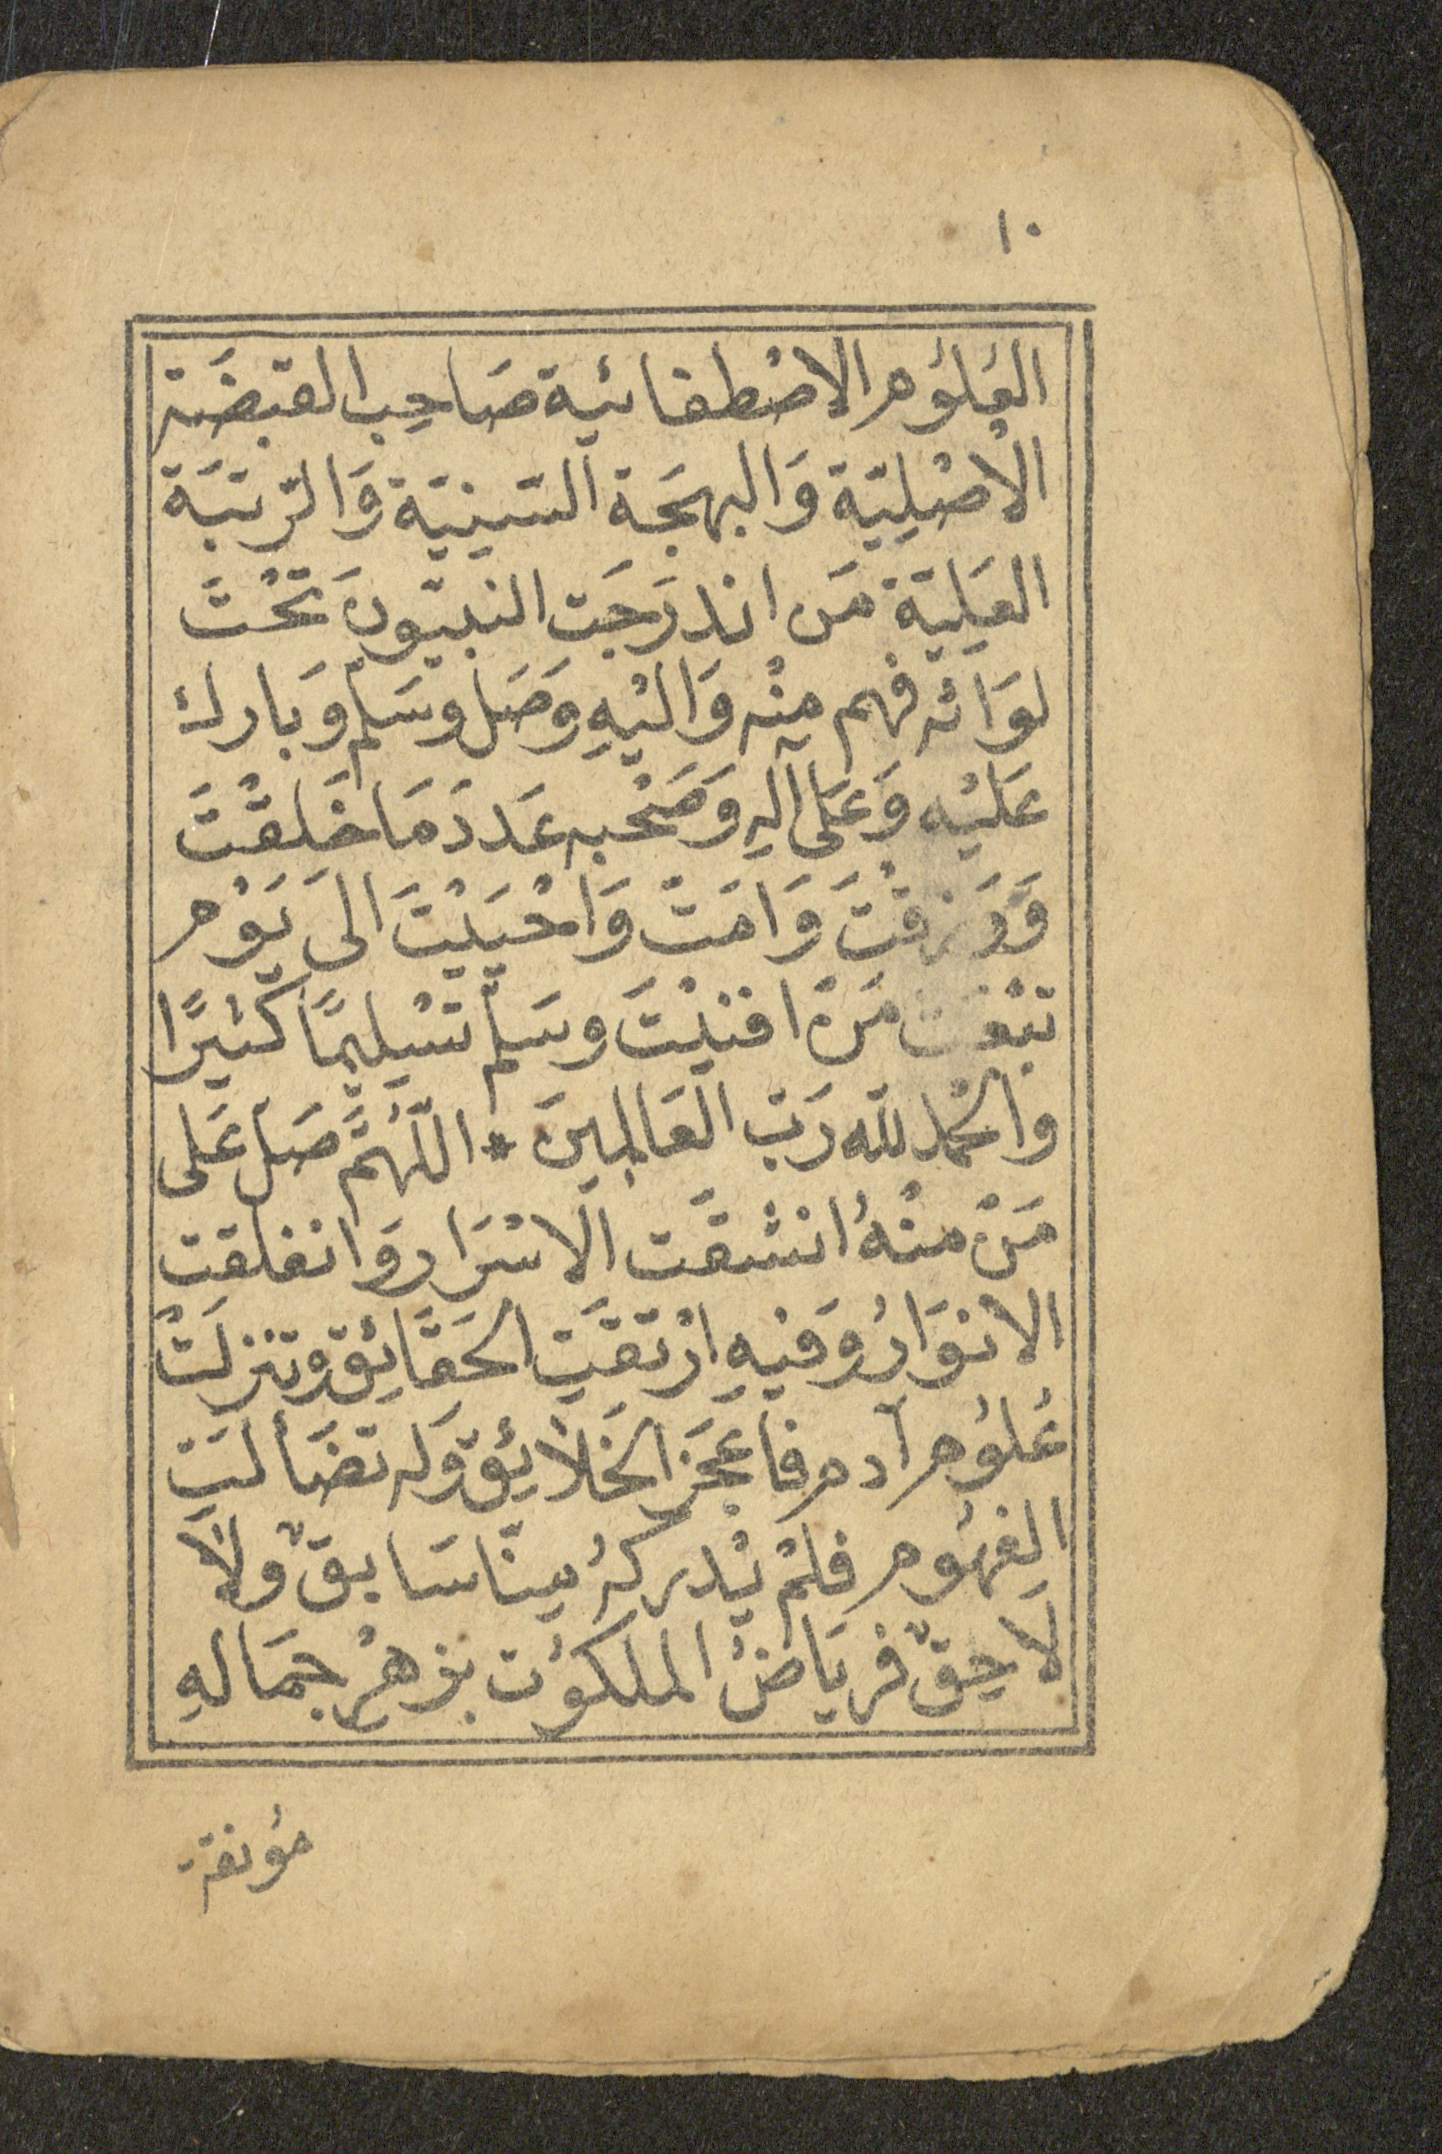 ١٠
العُلوُم الاصْطفائية صَاحِب القبضَة
الاصْلِيّة وَالبهجَة السَنِيّة وَالرّتبَة
العَلِيّة مَن اندرَجَت النبيّونَ تَحْتَ
لوَائه فهم مِنْه وَاليْهِ وَصَل وسَلّم وَبارك
عَليْه وَعَلى آلهِ وَصَحْبه عَددَ مَا خَلَقْتَ
وَرَزقْتَ وَامَتّ وَاحْيَيْتَ الى يَوْم
تبْعَث مَنْ افنيْتَ وسَلّم تسْلِيمًا كثيرًا
والحْمد للّه رَبّ العَالمِينَ * اللّهُمَّ صَل عَلى
مَنْ منْهُ انشقَّت الاسْرَار وَانفلقت
الانوَارُ وَفيْهِ ارْتقَتِ الحَقَائِق وَتنزلَتْ
عُلوُم آدم فاعجَز الخَلائِق وَله تضَألَتِ
الفهُوم فلمْ يُدركهُ منّا سَابق ولا
لاحِق فريَاضُ الملكوُت بزهْرِ جمَالهِ
مؤنقة